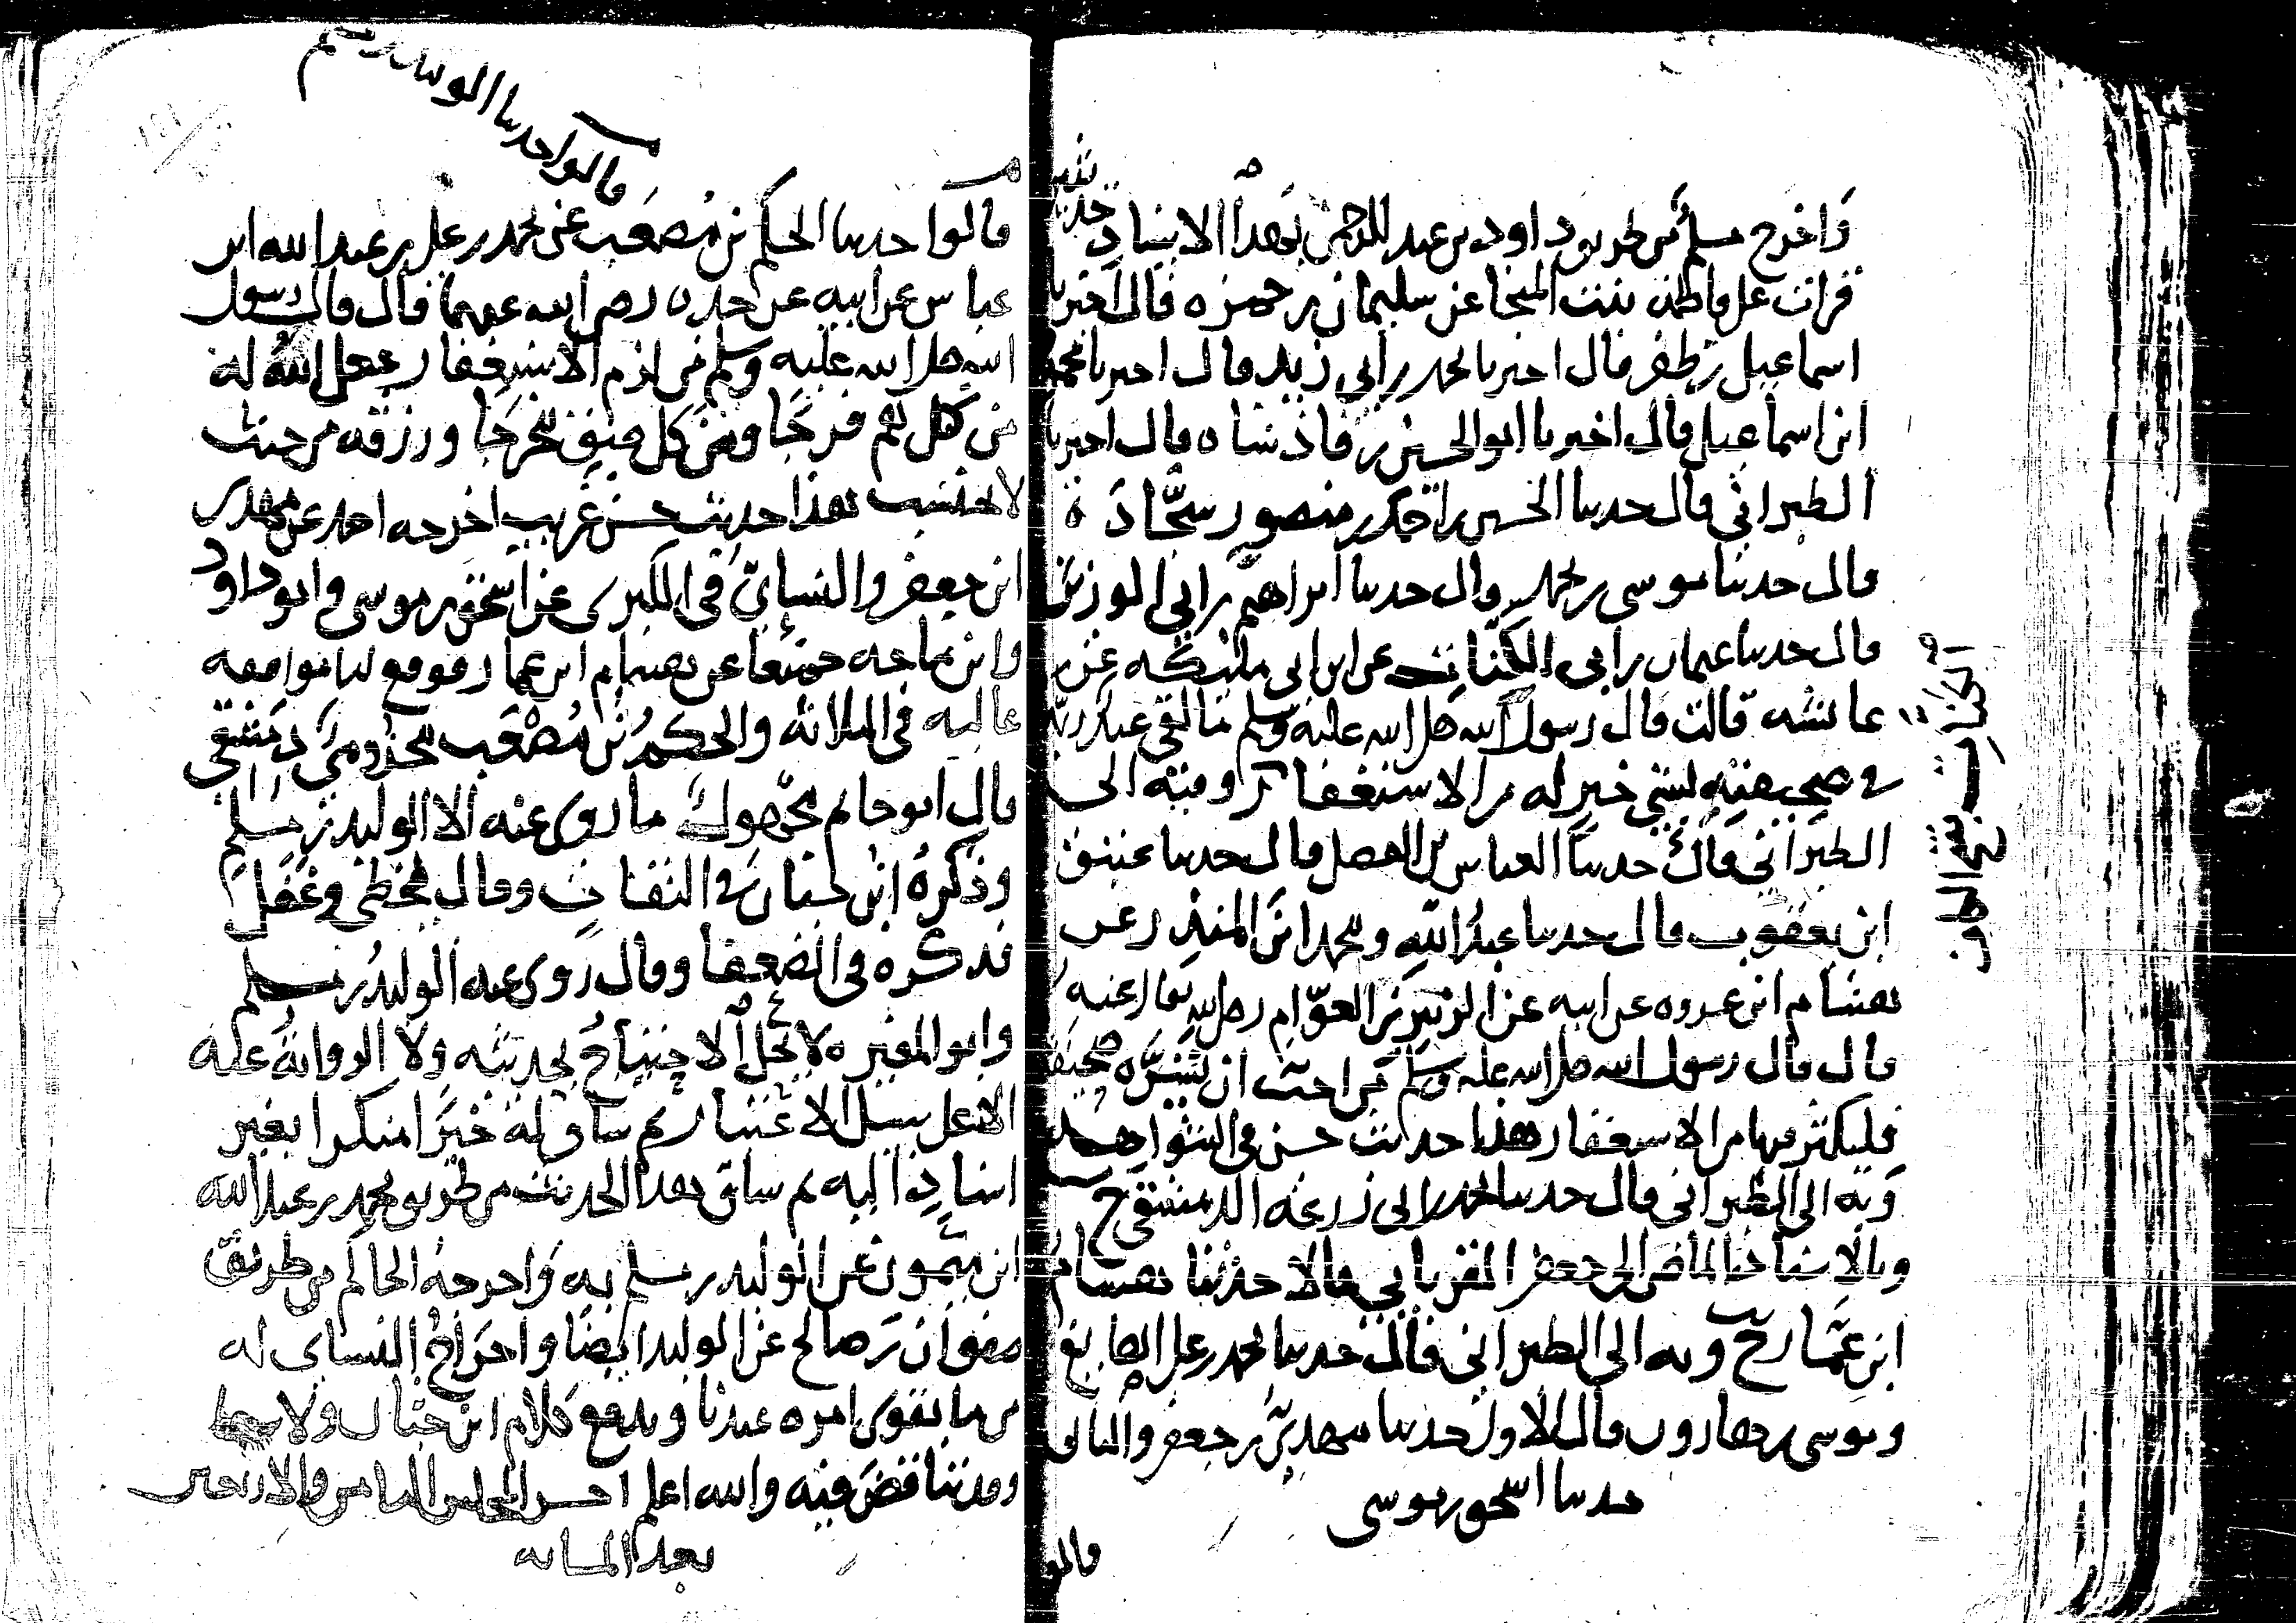 وأخرج مسلم من طريق داود بن عبد الرحمن بهذا الإسناد حديثا
قرأت على فاطمة بنت المنجا عن سليمان بن حمزة قال أخبرنا
إسماعيل بن ظفر قال أخبرنا محمد بن أبي زيد قال أخبرنا محمود
ابن إسماعيل قال أخبرنا أبو الحسين بن فاذشاه قال أخبرنا
الطبراني قال حدثنا الحسين بن أحمد بن منصور سجادة
قال حدثنا موسى بن محمد قال حدثنا إبراهيم بن أبي الوزير
قال حدثنا عثمان بن أبي الكنات عن ابن أبي مليكة عن
عائشة قالت قال رسول الله صلى الله عليه وسلم ما لقي عبد ربه
في صحيفته بشيء خير له من الاستغفار وبه إلى
الطبراني قال حدثنا العباس بن الفضل قال حدثنا عتيق
ابن يعقوب قال حدثنا عبد الله ومحمد ابنا المنذر عن
هشام ابن عروة عن أبيه عن الزبير بن العوام رضي الله تعالى عنه
قال قال رسول الله صلى الله عليه وسلم من أحب أن تسره صحيفته
فليكثر فيها من الاستغفار هذا حديث حسن في الشواهد
وبه إلى الطبراني قال حدثنا أحمد بن أبي زرعة الدمشقي ح
وبالإسناد الماضي إلى جعفر الفريابي قالا حدثنا هشام
ابن عمار ح وبه إلى الطبراني قال حدثنا محمد بن علي الصايغ
وموسى بن هارون قال الأول حدثنا مهدي بن جعفر والثاني
حدثنا إسحق بن موسى
قالوا
الكنات بنون
قالوا حدثنا الوليد بن مسلم
قالوا حدثنا الحكم بن مصعب عن محمد بن علي بن عبد الله ابن
عباس عن أبيه عن جده رضي الله عنهما قال قال رسول
الله صلى الله عليه وسلم من لزم الاستغفار جعل الله له
من كل هم فرجا ومن كل ضيق مخرجا ورزقه من حيث
لا يحتسب هذا حديث حسن غريب أخرجه أحمد عن مهدي
ابن جعفر والنسائي في الكبرى عن إسحق بن موسى وأبو داود
وابن ماجه جميعا عن هشام ابن عمار فوقع لنا موافقة
عالية في الثلاثة والحكم بن مصعب مخزومي دمشقي
قال أبو حاتم مجهول ما روى عنه إلا الوليد بن مسلم
وذكره ابن حبان في الثقات وقال يخطئ وغفل
فذكره في الضعفا وقال روى عنه الوليد بن مسلم
وأبو المغيرة لا يحل الاحتجاج بحديثه ولا الرواية عنه
إلا على سبيل الاعتبار ثم ساق له خبرا منكرا بغير
إسناد إليه ثم ساق هذا الحديث من طريق محمد بن عبد الله
ابن ميمون عن الوليد بن مسلم به وأخرجه الحاكم من طريق
صفوان بن صالح عن الوليد أيضا وإخراج النسائي له
مما يقوي أمره عندنا ويدفع كلام ابن حبان ولا سيما
وقد تناقض فيه والله أعلم آخر المجلس الثامن والأربعين
بعد المائة